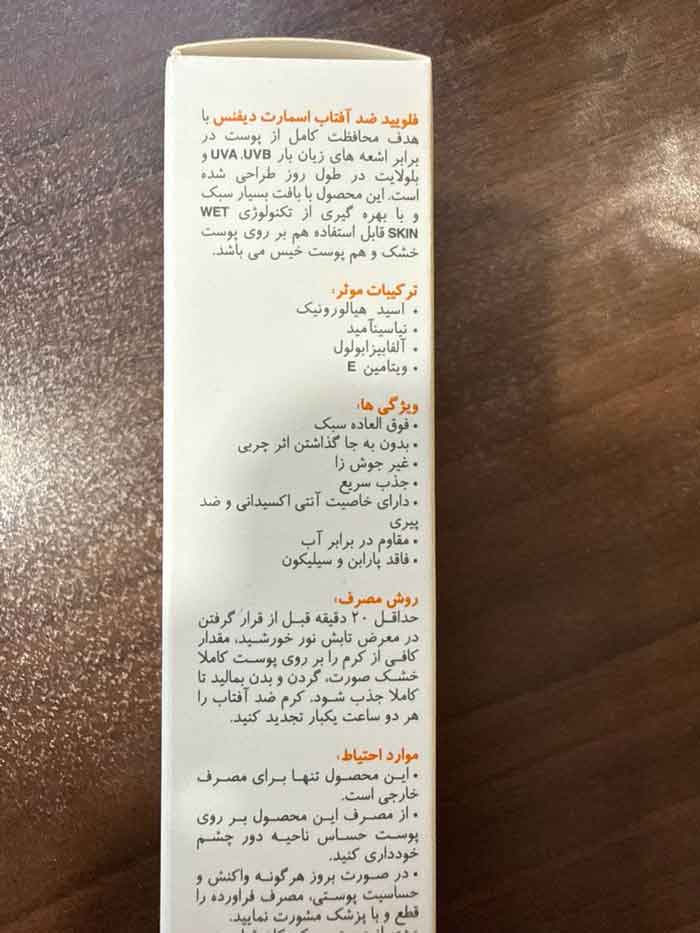 فلویید ضد آفتاب اسمارت دیفنس با
هدف محافظت کامل از پوست در
برابر اشعه های زیان بار UVA ،UVB و
بلولایت در طول روز طراحی شده
است. این محصول با بافت بسیار سبک
و با بهره گیری از تکنولوژی WET
SKIN قابل استفاده هم بر روی پوست
خشک و هم پوست خیس می باشد.
ترکیبات موثر:
• اسید هیالورونیک
• نیاسینآمید
• آلفابیزابولول
• ویتامین E
ویژگی ها:
• فوق العاده سبک
• بدون به جا گذاشتن اثر چربی
• غیر جوش زا
• جذب سریع
• دارای خاصیت آنتی اکسیدانی و ضد
پیری
• مقاوم در برابر آب
• فاقد پارابن و سیلیکون
روش مصرف:
حداقل ۲۰ دقیقه قبل از قرار گرفتن
در معرض تابش نور خورشید، مقدار
کافی از کرم را بر روی پوست کاملا
خشک صورت، گردن و بدن بمالید تا
کاملا جذب شود. کرم ضد آفتاب را
هر دو ساعت یکبار تجدید کنید.
موارد احتیاط:
• این محصول تنها برای مصرف
خارجی است.
• از مصرف این محصول بر روی
پوست حساس ناحیه دور چشم
خودداری کنید.
• در صورت بروز هرگونه واکنش و
حساسیت پوستی، مصرف فراورده را
قطع و با پزشک مشورت نمایید.